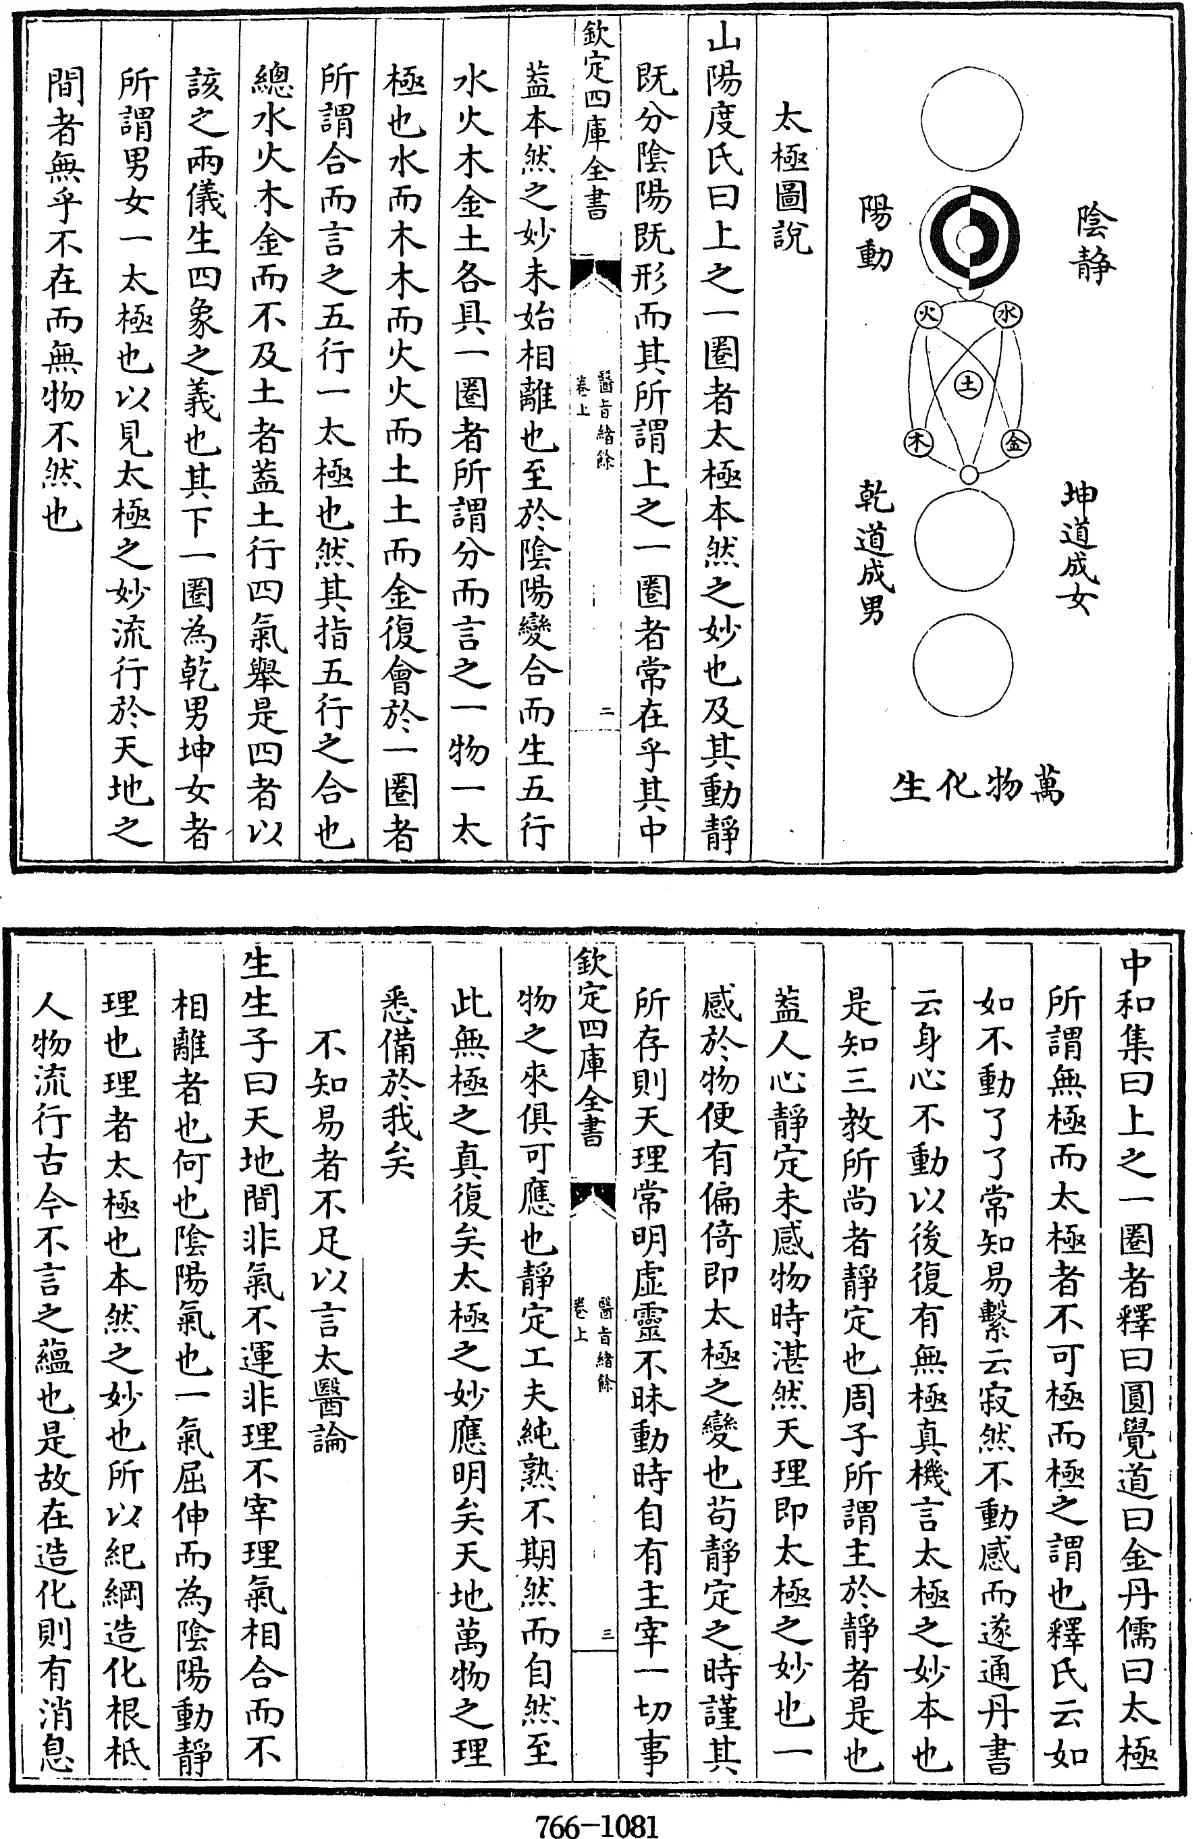 陰静
陽動
水
火
土
金
木
坤道成女
乾道成男
萬物化生
太極圖説
山陽度氏曰上之一圏者太極本然之妙也及其動靜
既分陰陽既形而其所謂上之一圏者常在乎其中
欽定四庫全書
醫旨緒餘
卷上
二
葢本然之妙未始相離也至於陰陽變合而生五行
水火木金土各具一圏者所謂分而言之一物一太
極也水而木木而火火而土土而金復會於一圏者
所謂合而言之五行一太極也然其指五行之合也
總水火木金而不及土者葢土行四氣舉是四者以
該之兩儀生四象之義也其下一圏為乾男坤女者
所謂男女一太極也以見太極之妙流行於天地之
間者無乎不在而無物不然也
中和集曰上之一圏者釋曰圓覺道曰金丹儒曰太極
所謂無極而太極者不可極而極之謂也釋氏云如
如不動了了常知易繫云寂然不動感而遂通丹書
云身心不動以後復有無極真機言太極之妙本也
是知三教所尚者靜定也周子所謂主於靜者是也
葢人心靜定未感物時湛然天理即太極之妙也一
感於物便有偏倚即太極之變也苟靜定之時謹其
所存則天理常明虚靈不昧動時自有主宰一切事
欽定四庫全書
醫旨緒餘
卷上
三
物之來俱可應也靜定工夫純熟不期然而自然至
此無極之真復矣太極之妙應明矣天地萬物之理
悉備於我矣
不知易者不足以言太醫論
生生子曰天地間非氣不運非理不宰理氣相合而不
相離者也何也陰陽氣也一氣屈伸而為陰陽動靜
理也理者太極也本然之妙也所以紀綱造化根柢
人物流行古今不言之藴也是故在造化則有消息
766-1081